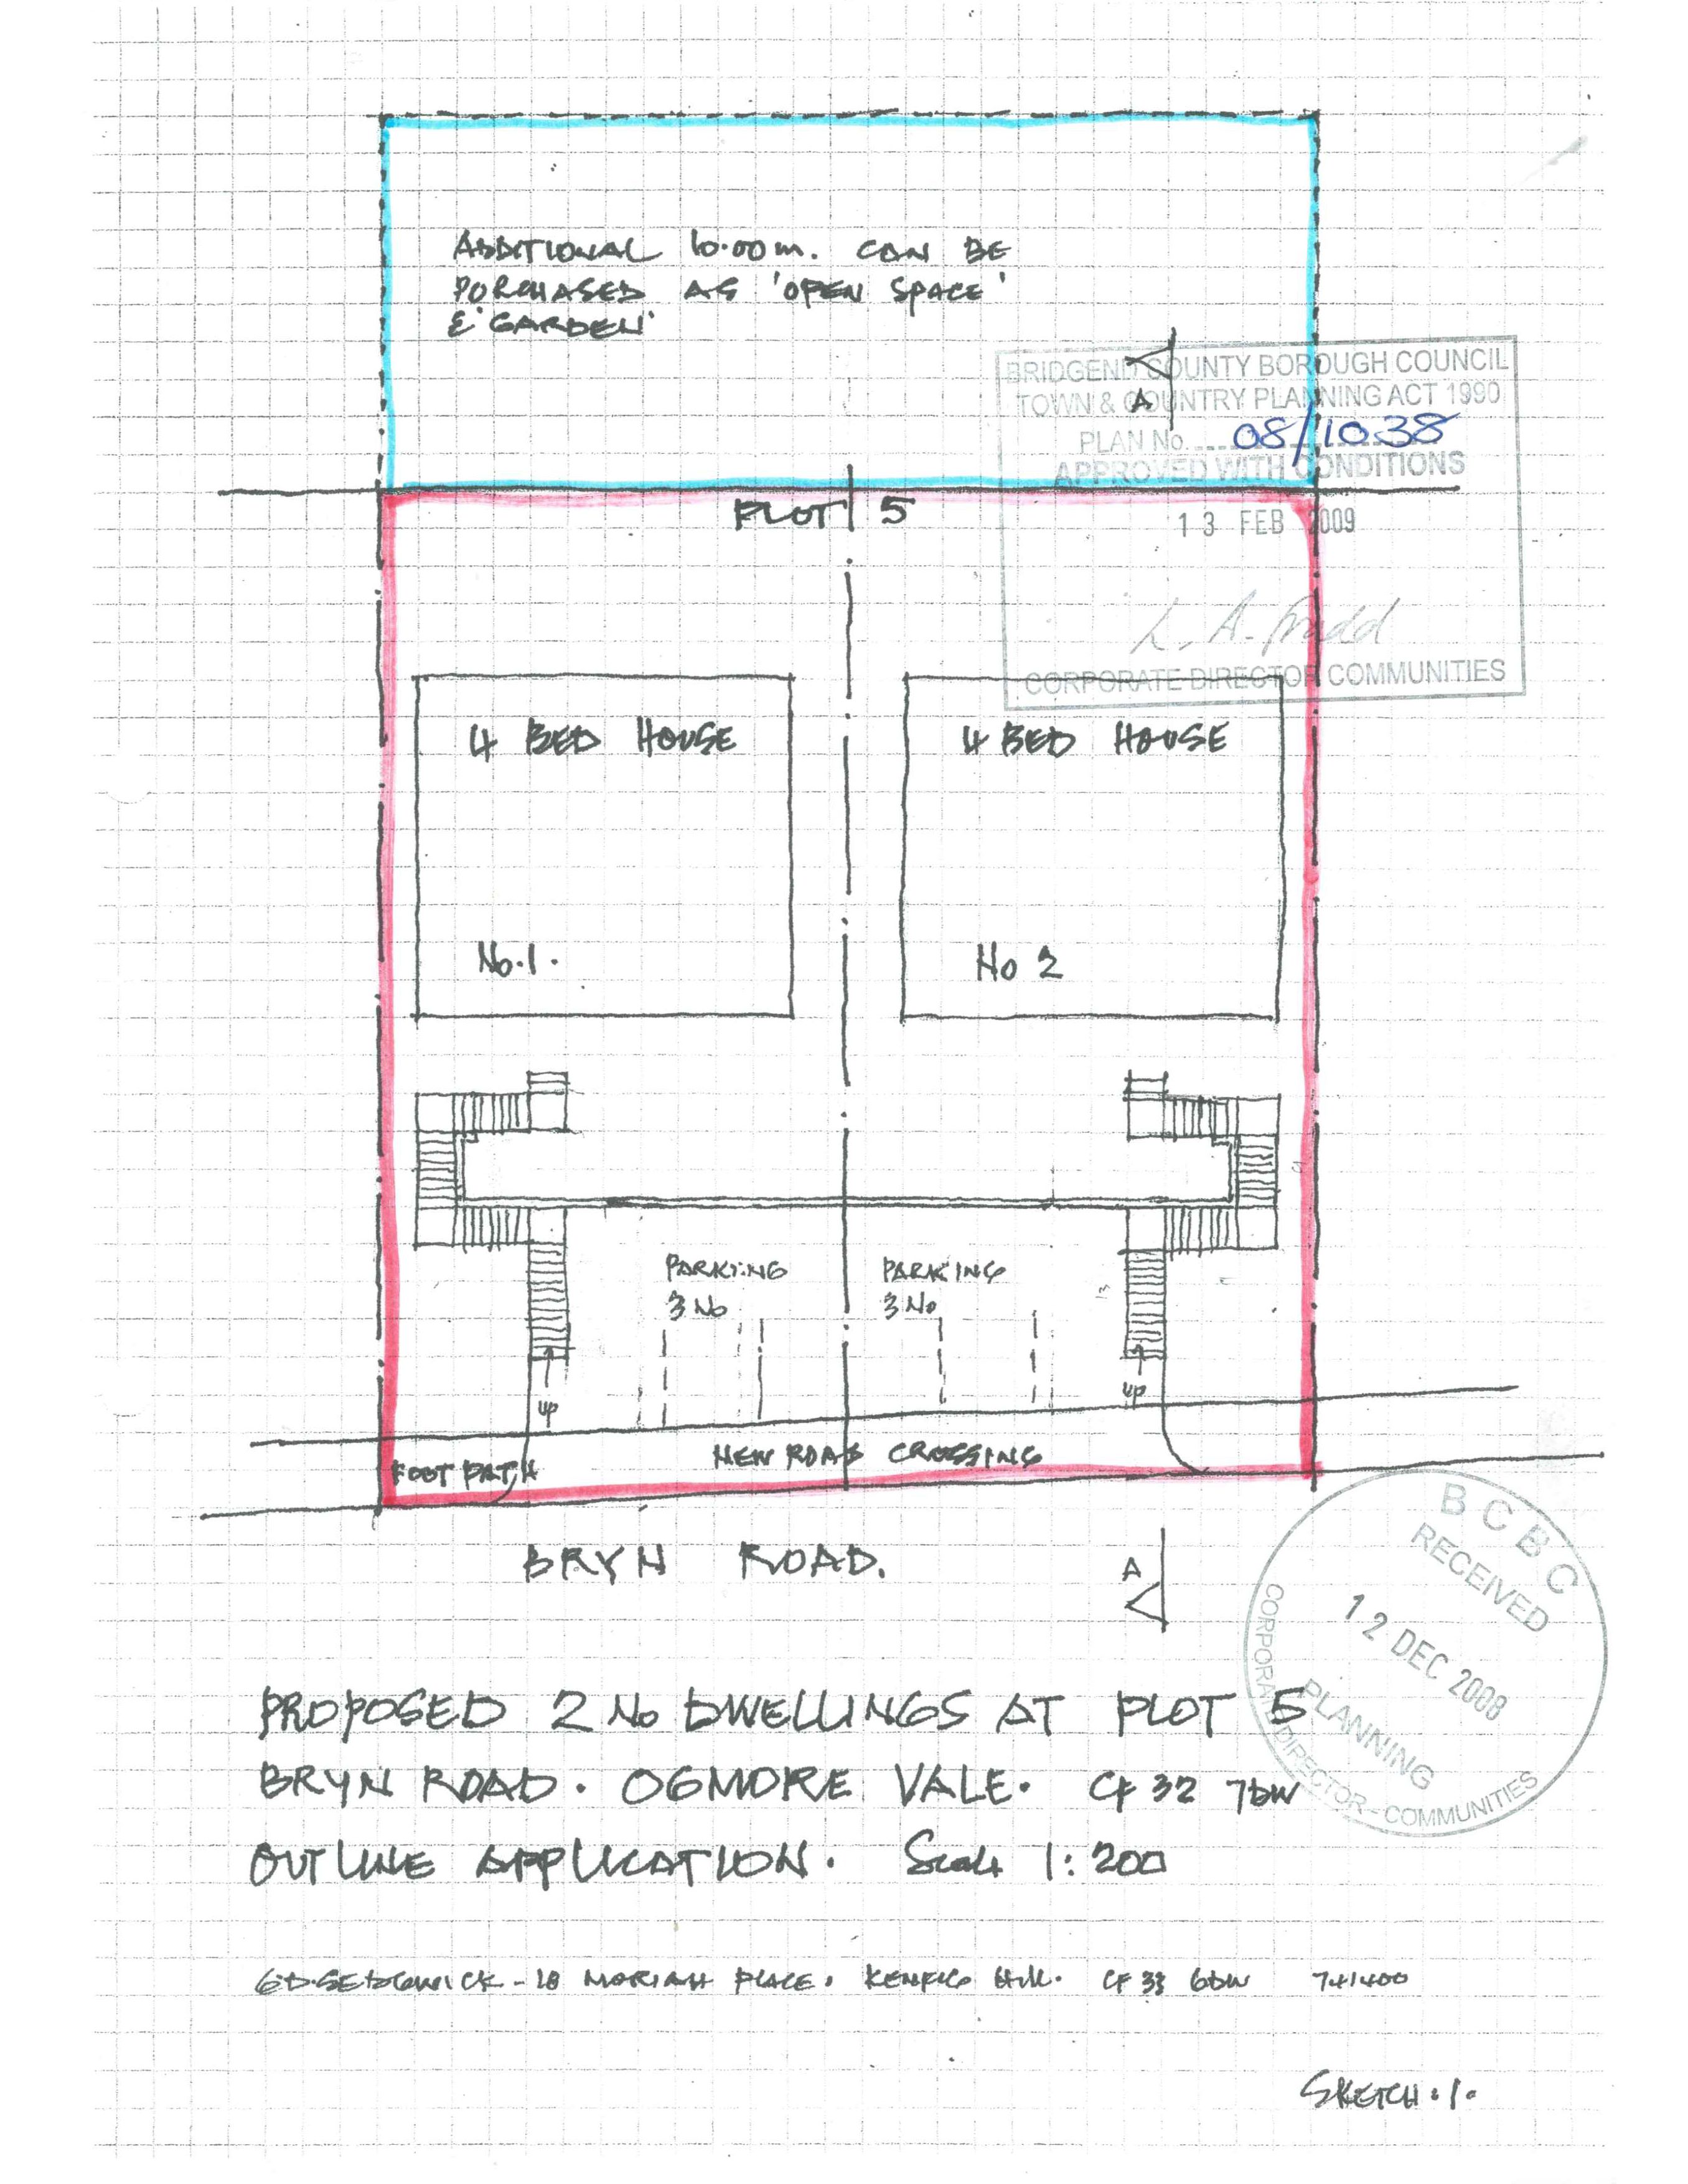 ADDITIONAL 10.00m. CAN BE
PURCHASED AS 'OPEN SPACE'
& 'GARDEN'
A
BRIDGEND COUNTY BOROUGH COUNCIL
TOWN & COUNTRY PLANNING ACT 1990
PLAN No. 08/1038
APPROVED WITH CONDITIONS
13 FEB 2009
CORPORATE DIRECTOR COMMUNITIES
PLOT 5
4 BED HOUSE
No.1.
4 BED HOUSE
No 2
PARKING
3 No
PARKING
3 No
UP
UP
FOOT PATH
NEW ROAD CROSSING
BRYN ROAD.
A
BCBC
RECEIVED
12 DEC 2008
PLANNING
CORPORATE DIRECTOR - COMMUNITIES
PROPOSED 2 No DWELLINGS AT PLOT 5
BRYN ROAD. OGMORE VALE. CF 32 7DW
OUTLINE APPLICATION. Scale 1:200
SEDGWICK - 18 MORIAH PLACE. KENFIG Hill. CF 33 6DW 741400
SKETCH.1.